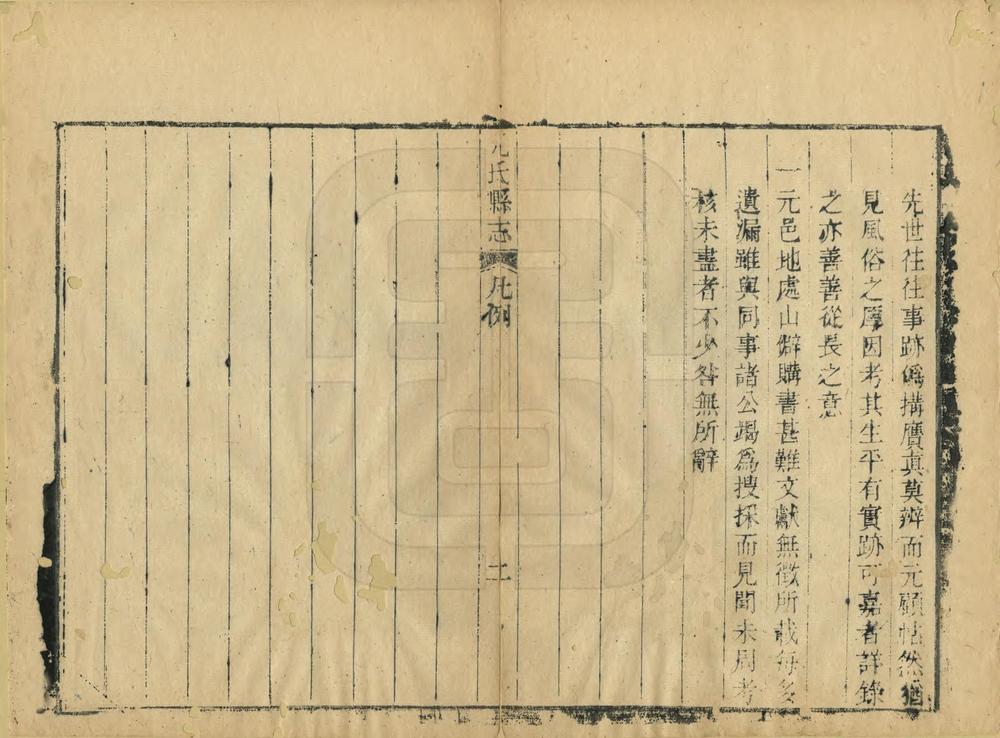 先世往往事跡僞搆贋真莫辨而元願恬然猶
見風俗之厚因考其生平有實跡可嘉者詳錄
之亦善善從長之意
一元邑地處山僻購書甚難文獻無徵所載每多
遺漏雖與同事諸公竭為搜採而見聞未周考
核未盡者不少咎無所辭
元氏縣志
凡例
二